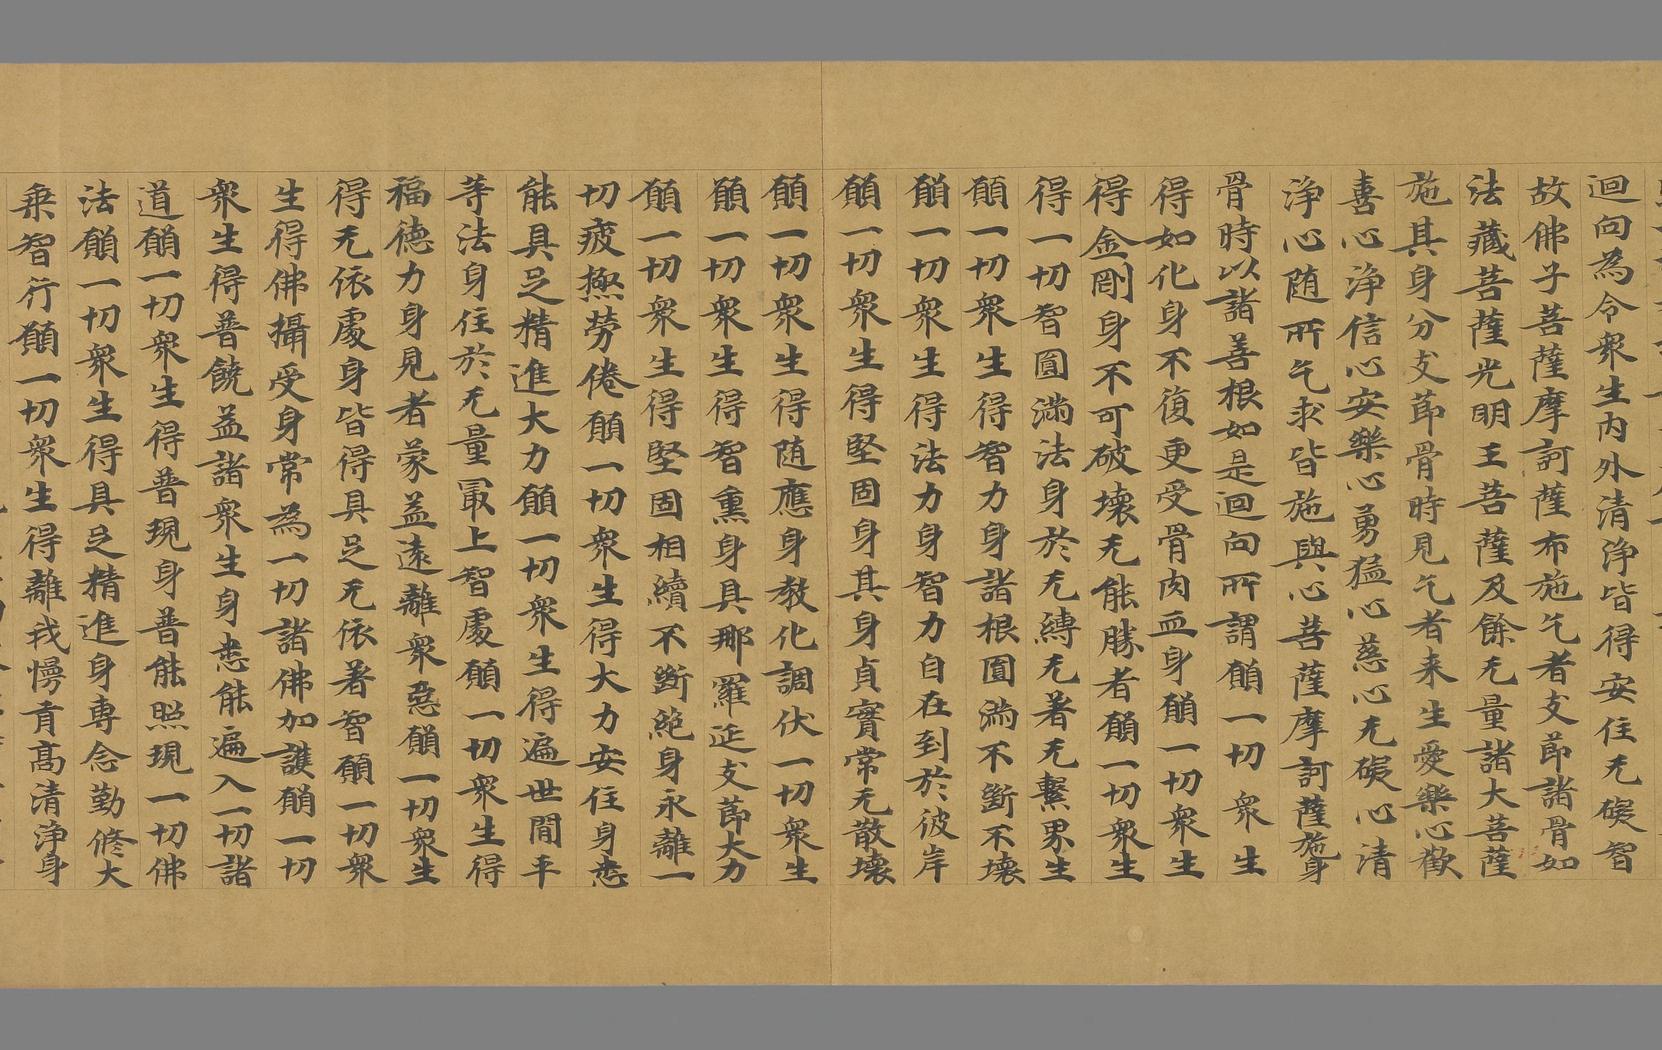 迴向為令衆生内外清浄皆得安住无礙智
故佛子菩薩摩訶薩布施乞者支莭諸骨如
法藏菩薩光明王菩薩及餘无量諸大菩薩
施其身分支莭骨時見乞者来生愛樂心歡
喜心浄信心安樂心勇猛心慈心无礙心清
浄心随所乞求皆施與心菩薩摩訶薩施身
骨時以諸善根如是迴向所謂願一切衆生
得如化身不復更受骨肉血身願一切衆生
得金剛身不可破壞无能勝者願一切衆生
得一切智圓滿法身於无縛无著无繫界生
願一切衆生得智力身諸根圓滿不斷不壞
願一切衆生得法力身智力自在到於彼岸
願一切衆生得堅固身其身貞實常无散壞
願一切衆生得随應身教化調伏一切衆生
願一切衆生得智熏身具那羅延支莭大力
願一切衆生得堅固相續不斷絶身永離一
切疲極勞倦願一切衆生得大力安住身悉
能具足精進大力願一切衆生得遍世間平
等法身住於无量冣上智處願一切衆生得
福德力身見者蒙益遠離衆惡願一切衆生
得无依處身皆得具足无依著智願一切衆
生得佛攝受身常為一切諸佛加護願一切
衆生得普饒益諸衆生身悉能遍入一切諸
道願一切衆生得普現身普能照現一切佛
法願一切衆生得具足精進身專念勤修大
乗智行願一切衆生得離我慢貢髙清浄身